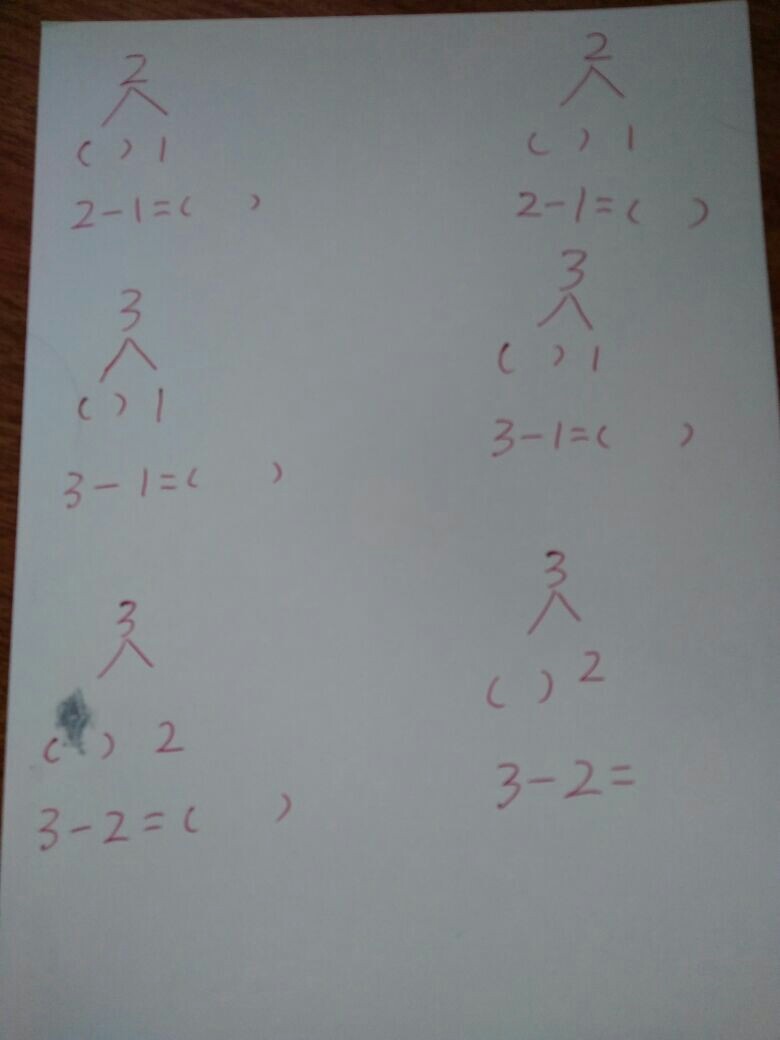 2
( ) 1
2-1=( )
3
( ) 1
3-1=( )
3
( ) 2
3-2=( )
2
( ) 1
2-1=( )
3
( ) 1
3-1=( )
3
( ) 2
3-2=